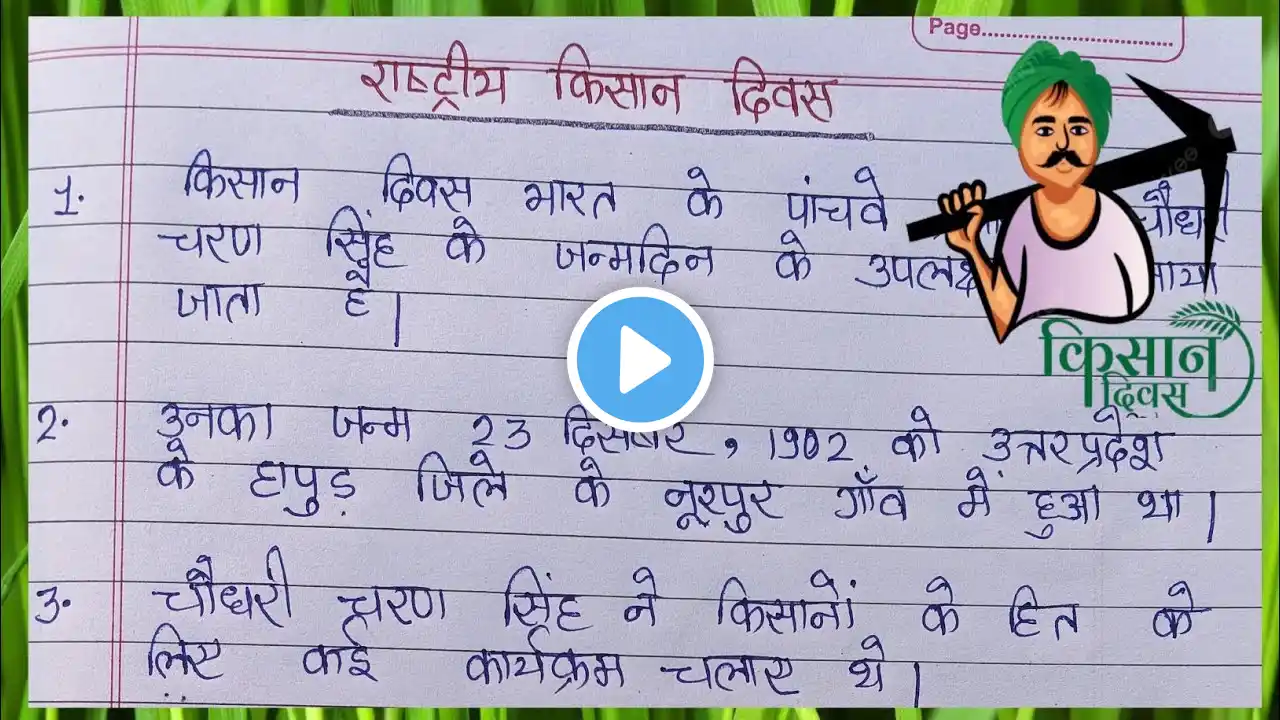 Page
राष्ट्रीय किसान दिवस
1. किसान दिवस भारत के पांचवे चौधरी
चरण सिंह के जन्मदिन के
जाता है।
किसान
दिवस
2. उनका जन्म 23 दिसंबर, 1902 को उत्तरप्रदेश
के हापुड़ जिले के नूरपुर गाँव में हुआ था।
3. चौधरी चरण सिंह ने किसानों के हित के
लिए कई कार्यक्रम चलाए थे।